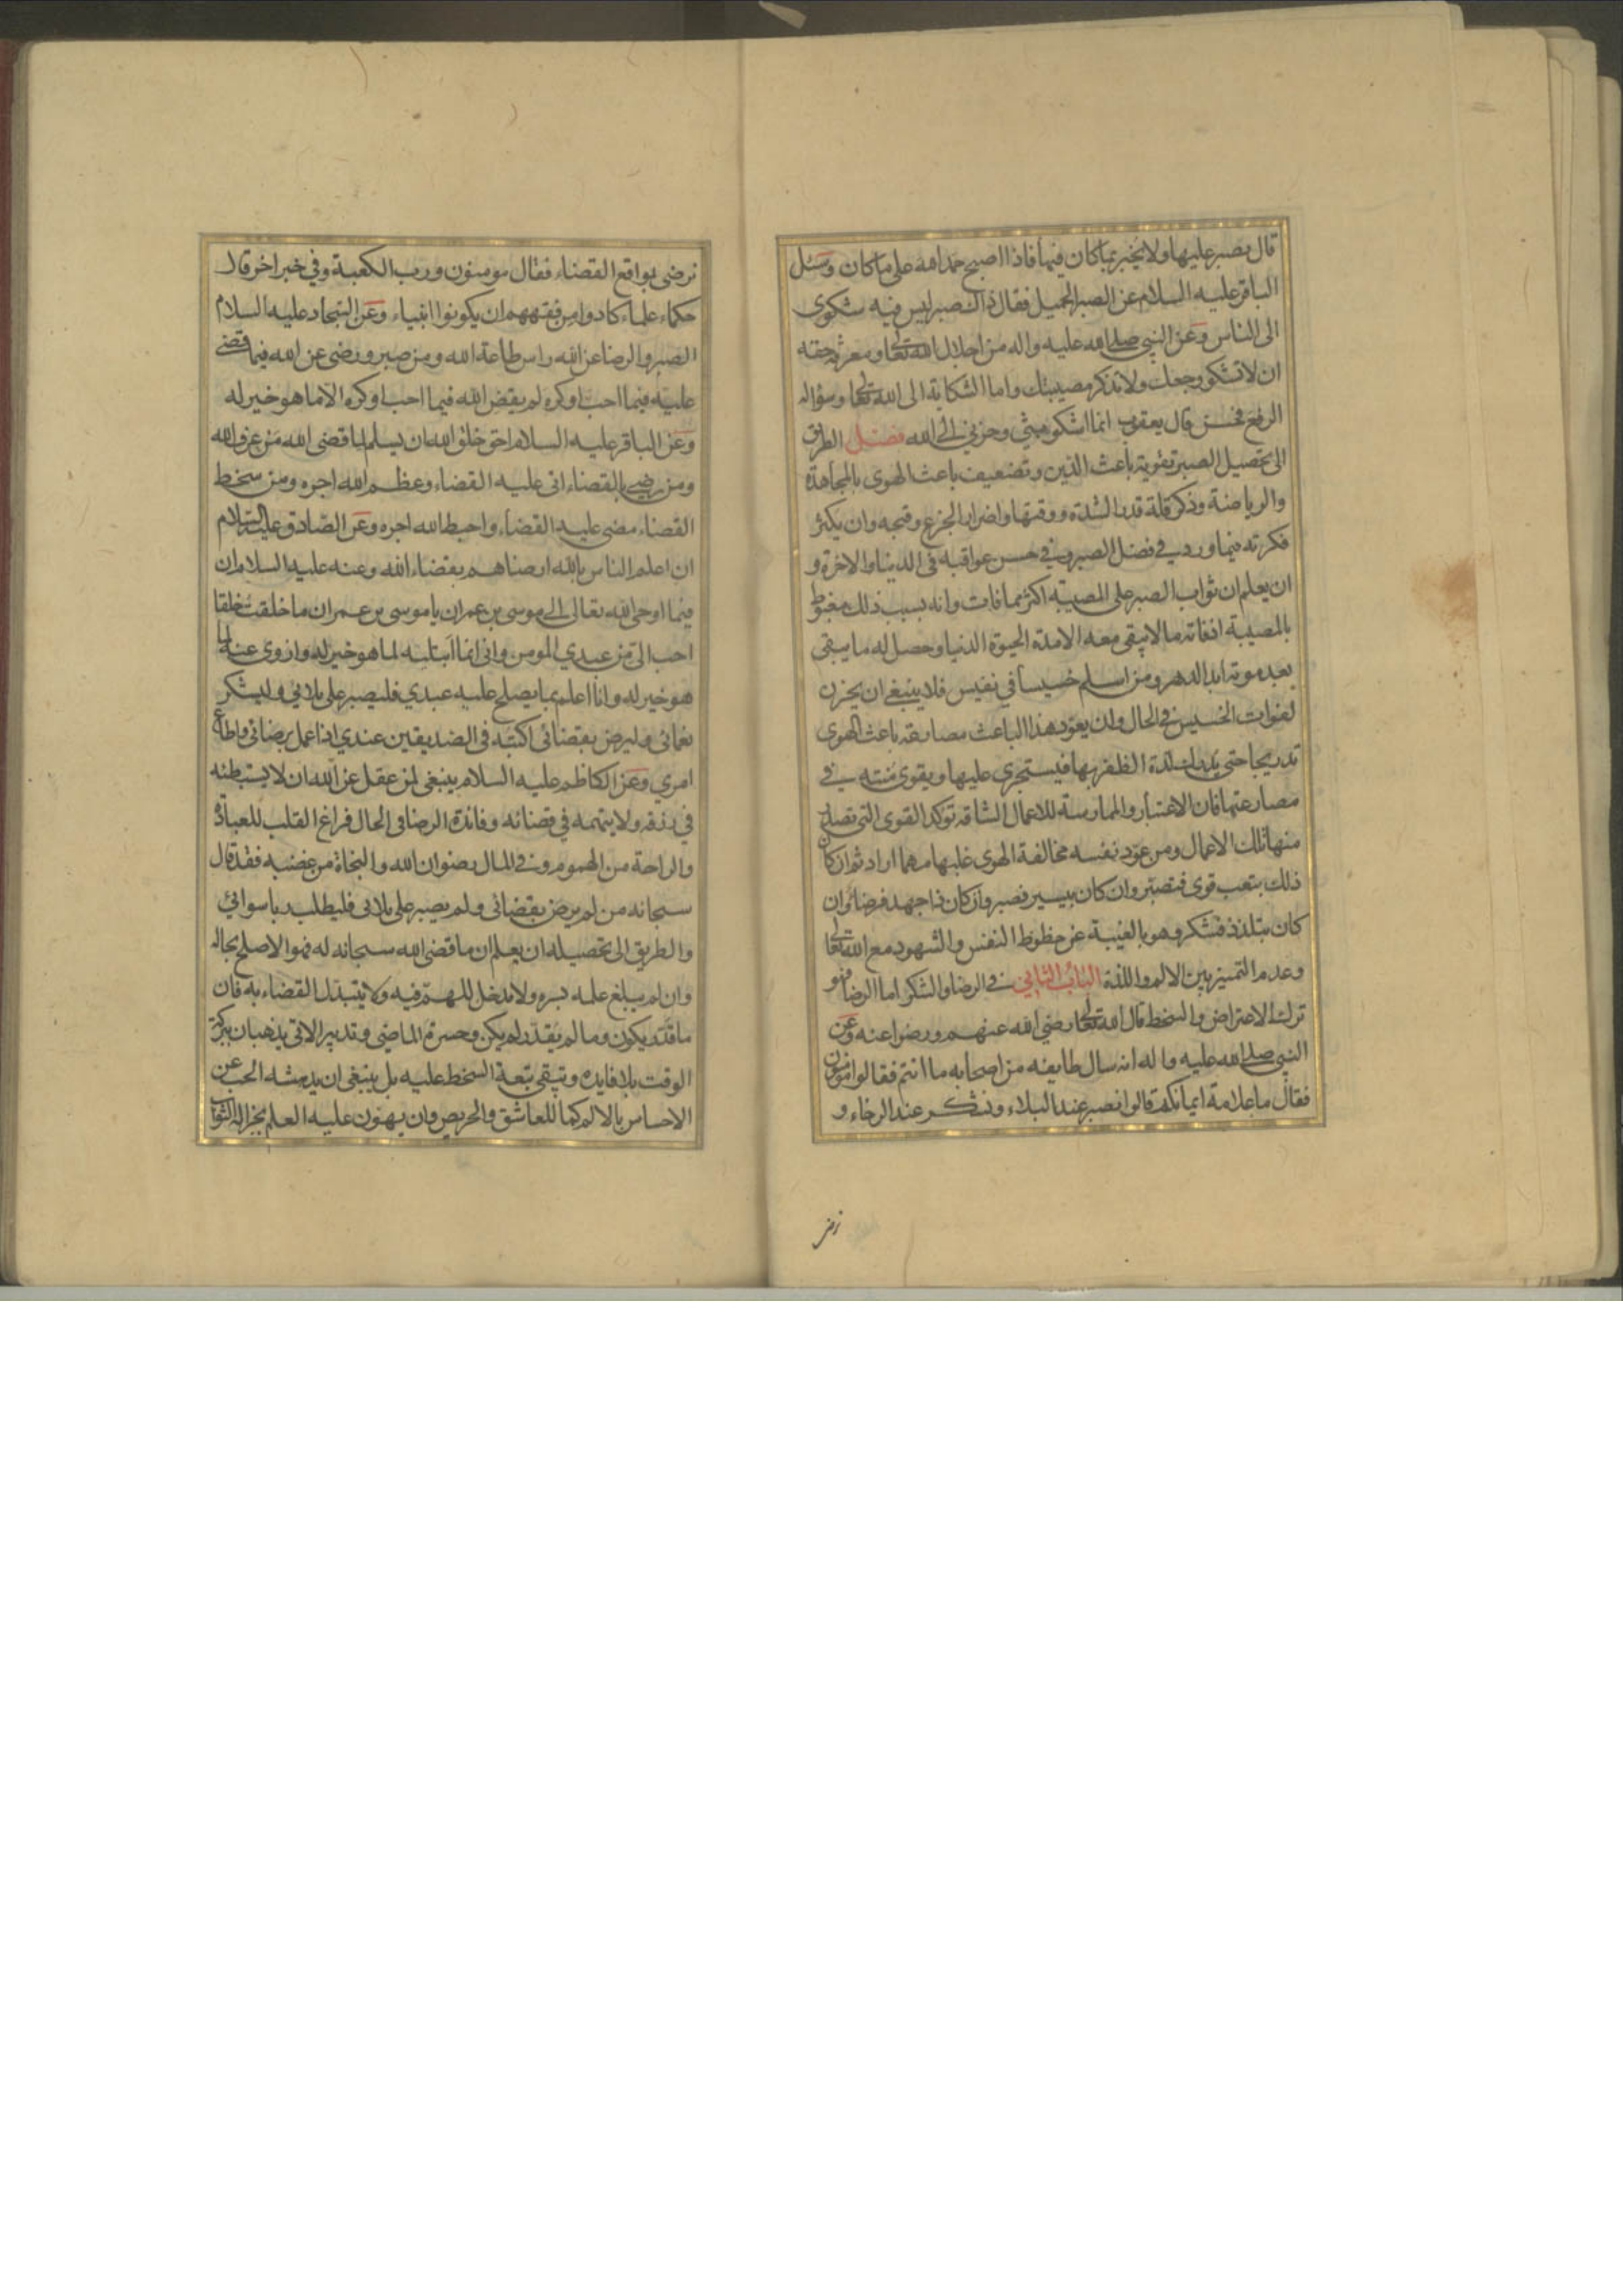 قال يصبر عليها ولا يخبر بما كان فيها فاذا اصبح حمد الله على ما كان وسئل
الباقر عليه السلام عن الصبر الجميل فقال ذاك صبر ليس فيه شكوى
الى الناس وعن النبي صلى الله عليه واله من اجلال الله تعالى ومعرفة حقه
ان لا تشكو وجعك ولا تذكر مصيبتك واما الشكاية الى الله تعالى وسؤاله
الرفع فحسن قال يعقوب انما اشكو بثي وحزني الى الله فصل الطريق
الى تحصيل الصبر تقوية باعث الدين وتضعيف باعث الهوى بالمجاهدة
والرياضة وذكر قلة قدر الشدة ووقتها واضرار الجزع وقبحه وان يكثر
فكرته فيما ورد في فضل الصبر وفي حسن عواقبه في الدنيا والاخرة و
ان يعلم ان ثواب الصبر على المصيبة اكثر مما فات وانه بسبب ذلك مغبوط
بالمصيبة اذ فاته ما لا يبقى معه الا مدة الحيوة الدنيا وحصل له ما يبقى
بعد موته ابد الدهر ومن اسلم خسيسا في نفيس فلا ينبغي ان يحزن
لفوات الخسيس في الحال وان يعود هذا الباعث مصارعة باعث الهوى
تدريجا حتى يدرك لذة الظفر بها فيستجرى عليها ويقوى منته في
مصارعتها فان الاعتبار والممارسة للاعمال الشاقة تؤكد القوى التي تصدر
منها تلك الاعمال ومن عود نفسه مخالفة الهوى غلبها مهما اراد ثم ان كان
ذلك بتعب قوى فتصبر وان كان بيسير فصبر وان كان ذا جهد فرضا وان
كان بتلذذ فشكر وهو بالغيبة عن حظوظ النفس والشهود مع الله تعالى
وعدم التميز بين الالم واللذة الباب الثاني في الرضا والشكر اما الرضا فهو
ترك الاعتراض والسخط قال الله تعالى رضي الله عنهم ورضوا عنه وعن
النبي صلى الله عليه واله انه سال طايفه من اصحابه ما انتم فقالوا مؤمنون
فقال ما علامة ايمانكم قالوا نصبر عند البلاء ونشكر عند الرخاء و
نرضى بواقع القضاء فقال مومنون ورب الكعبة وفي خبر اخر قال
حكماء علماء كادوا من فقههم ان يكونوا انبياء وعن السجاد عليه السلام
الصبر والرضا عن الله راس طاعة الله ومن صبر ورضى عن الله فيما قضى
عليه فيما احب او كره لم يقض الله فيما احب او كره الا ما هو خير له
وعن الباقر عليه السلام احق خلق الله ان يسلم لما قضى الله من عرف الله
ومن رضي بالقضاء اتى عليه القضاء وعظم الله اجره ومن سخط
القضاء مضى عليه القضاء واحبط الله اجره وعن الصادق عليه السلام
ان اعلم الناس بالله ارضاهم بقضاء الله وعنه عليه السلام ان
فيما اوحى الله تعالى الى موسى بن عمران يا موسى بن عمران ما خلقت خلقا
احب الي من عبدي المومن واني انما ابتليه لما هو خير له وازوى عنه لما
هو خير له وانا اعلم بما يصلح عليه عبدي فليصبر على بلائي وليشكر
نعمائي وليرض بقضائي اكتبه في الصديقين عندي اذا عمل برضائي واطاع
امري وعن الكاظم عليه السلام ينبغي لمن عقل عن الله ان لا يستبطئه
في رزقه ولا يتهمه في قضائه وفائدة الرضا في الحال فراغ القلب للعبادة
والراحة من الهموم وفي المال رضوان الله والنجاة من غضبه فقد قال
سبحانه من لم يرض بقضائي ولم يصبر على بلائي فليطلب ربا سوائي
والطريق الى تحصيله ان يعلم ان ما قضى الله سبحانه له فهو الاصلح بحاله
وان لم يبلغ علمه بسره ولا مدخل للهم فيه ولا يتبدل القضاء به فان
ما قدر يكون وما لم يقدر لم يكن وحسرة الماضي وتدبير الاتي يذهبان ببركة
الوقت بلا فايده وتبقى تبعة السخط عليه بل ينبغي ان يدهشه الحب عن
الاحساس بالالم كما للعاشق والحريص وان يهون عليه العلم بجزالة الثواب
نرض